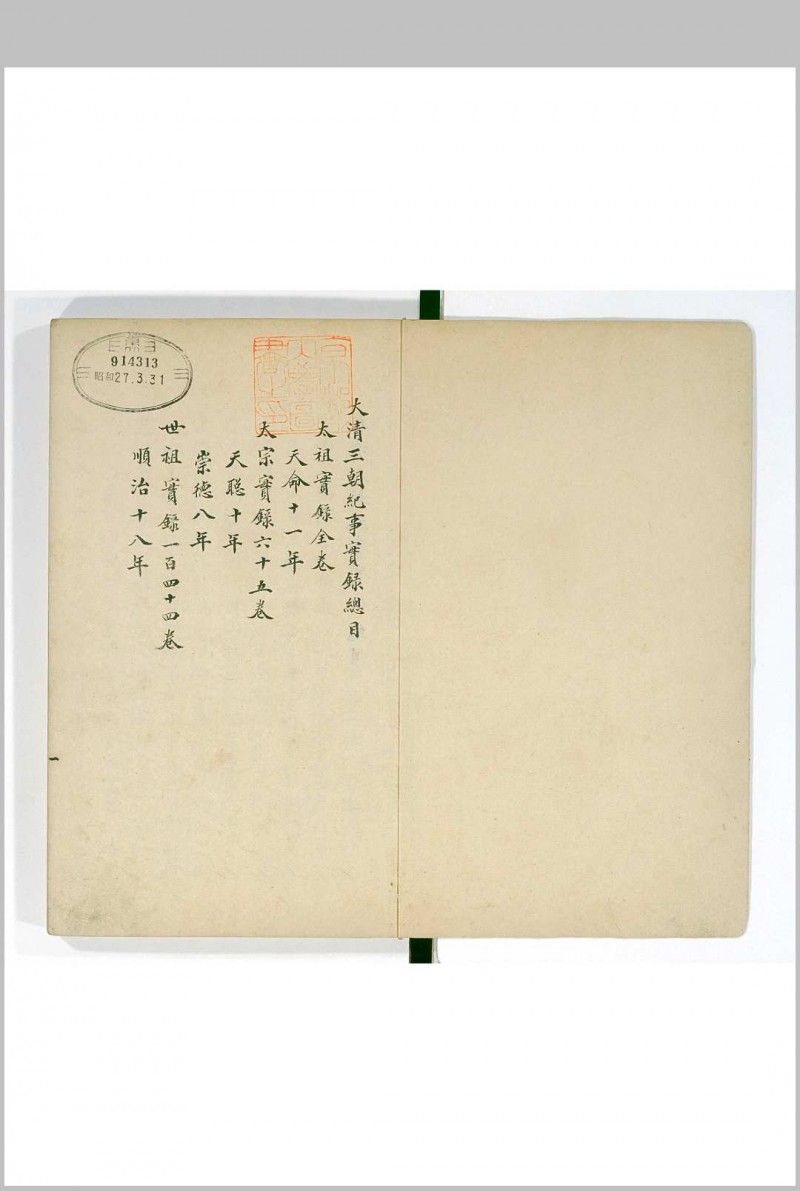 大清三朝紀事實錄總目
太祖實錄全卷
天命十一年
太宗實錄六十五卷
天聡十年
崇德八年
世祖實錄一百四十四卷
順治十八年
914313
昭和27.3.31